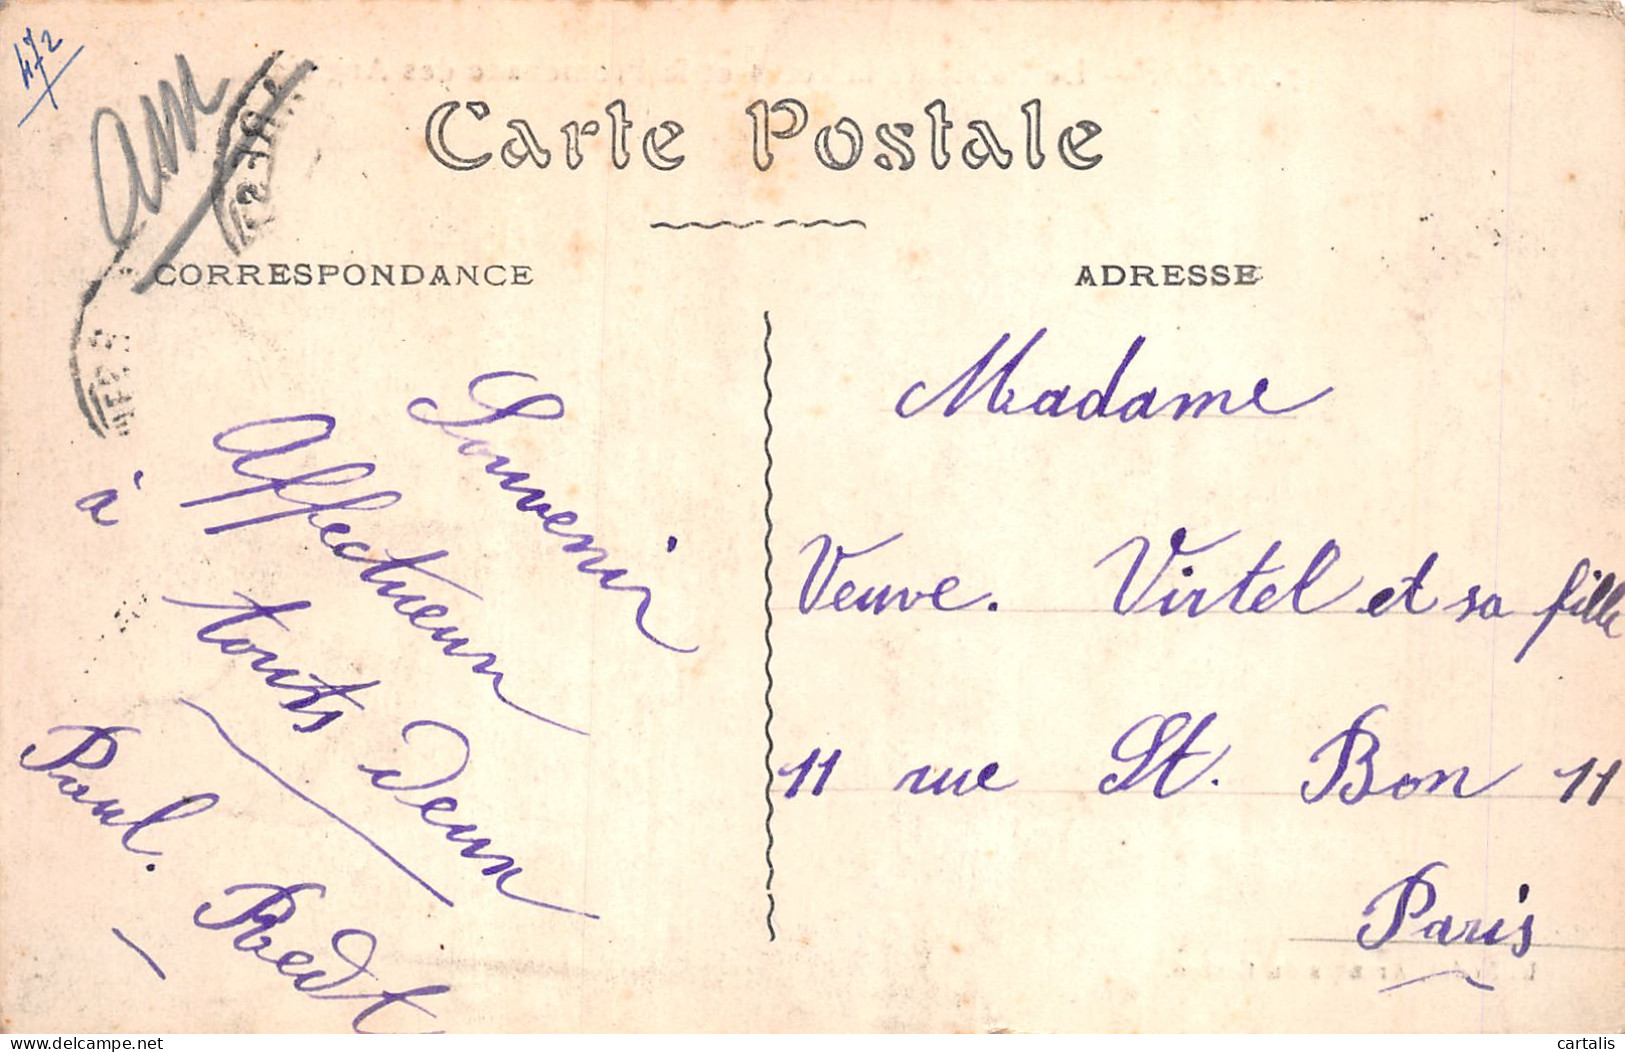 472
am
Carte Postale
CORRESPONDANCE
ADRESSE
Souvenir
Affectueux
à touts deux
Paul. Redt
Madame
Veuve. Virtel et sa fille
11 rue St. Bon 11
Paris
www.delcampe.net
cartalis